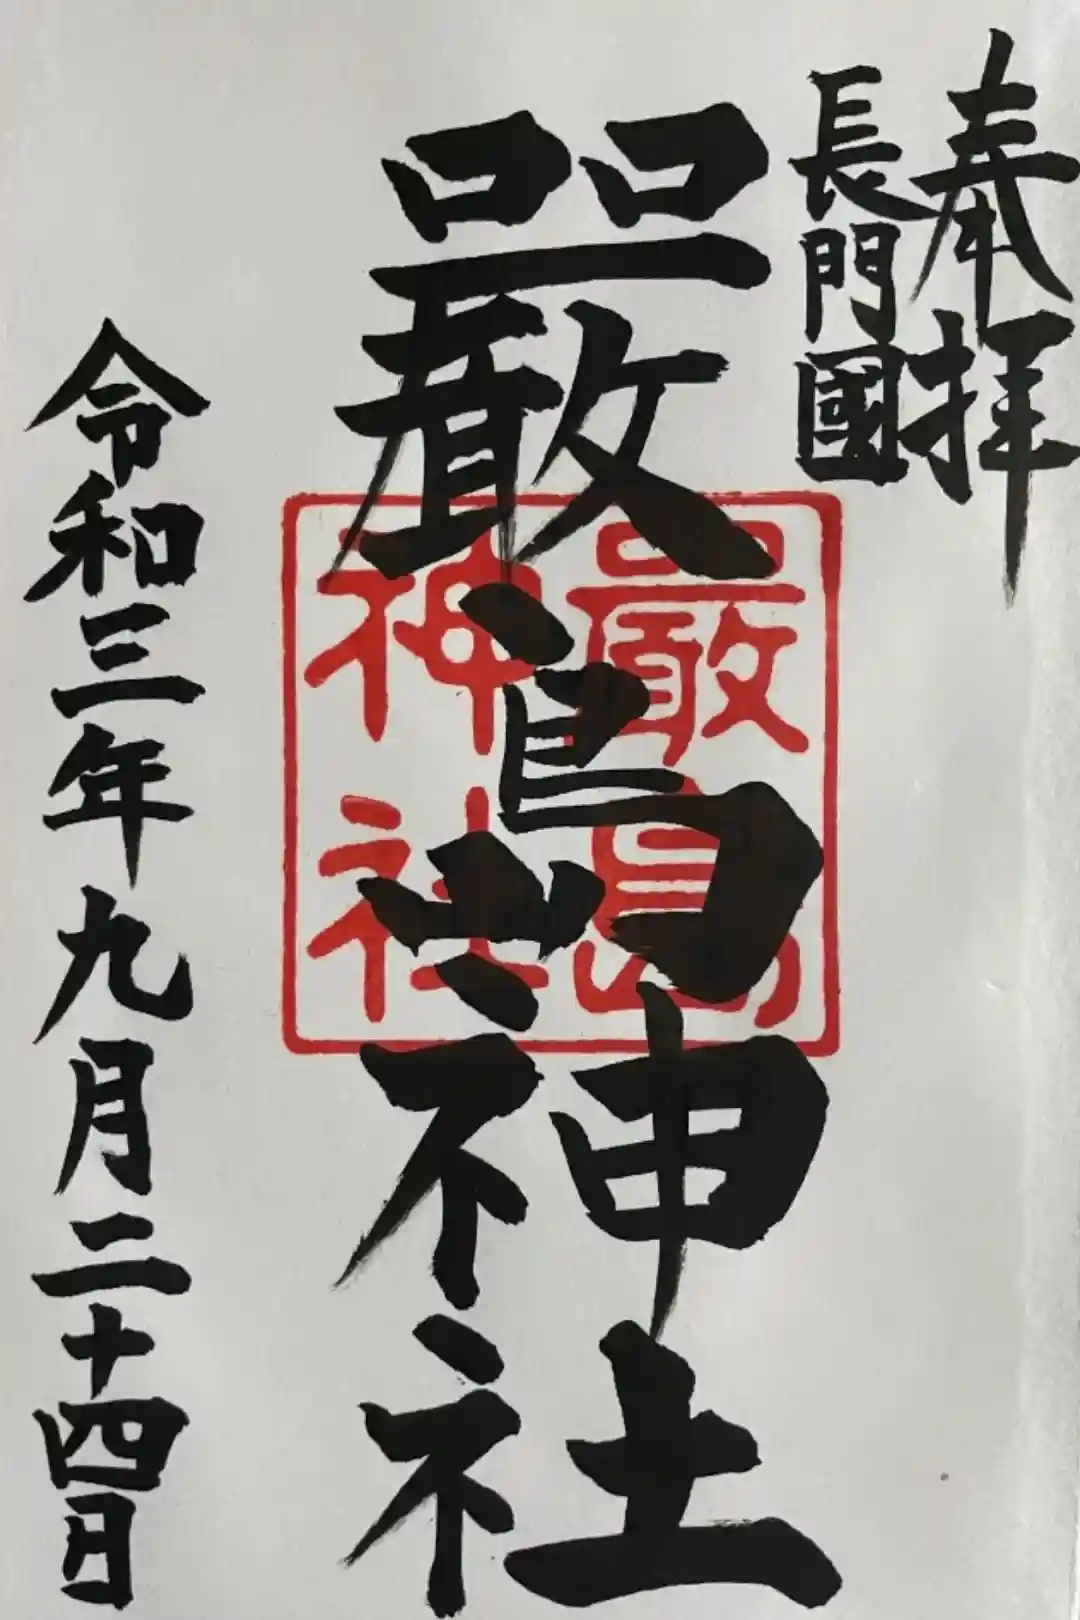 奉拝
長門國
嚴嶋神社
嚴島
神社
令和三年九月二十四日